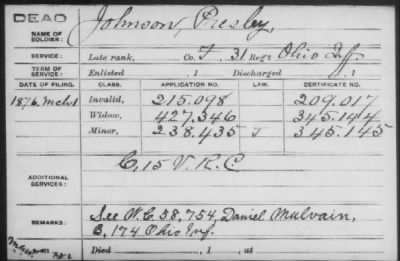 DEAD
NAME OF SOLDIER: Johnson, Presley
SERVICE: Late rank, Co. F 31 Reg't Ohio Inf.
TERM OF SERVICE: Enlisted , 1 Discharged , 1
DATE OF FILING. CLASS. APPLICATION NO. LAW. CERTIFICATE NO.
1876, Mch 1 Invalid, 215.098 209.017
Widow, 427.346 345.144
Minor, 238.435 345.145
ADDITIONAL SERVICES: C, 15 V.R.C.
REMARKS: See W.C. 58,754, Daniel Mulvain,
B, 174 Ohio Inf.
Died , 1 , at